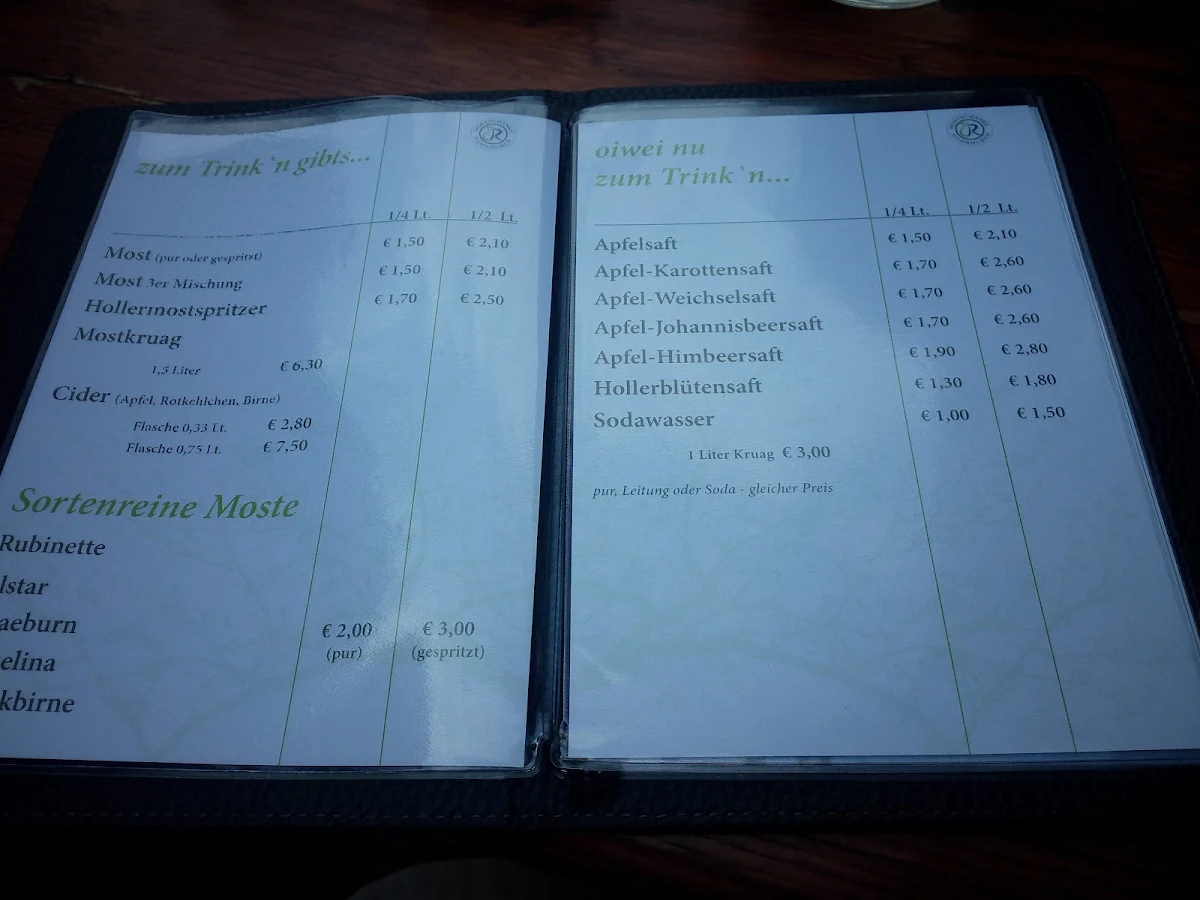 zum Trink`n gibts...
1/4 Lt. 1/2 Lt.
Most (pur oder gespritzt) € 1,50 € 2,10
Most 3er Mischung € 1,50 € 2,10
Hollermostspritzer € 1,70 € 2,50
Mostkruag
1,5 Liter € 6,30
Cider (Apfel, Rotkehlchen, Birne)
Flasche 0,33 Lt. € 2,80
Flasche 0,75 Lt. € 7,50
Sortenreine Moste
Rubinette
lstar
aeburn € 2,00 € 3,00
(pur) (gespritzt)
elina
kbirne
oiwei nu
zum Trink`n...
1/4 Lt. 1/2 Lt.
Apfelsaft € 1,50 € 2,10
Apfel-Karottensaft € 1,70 € 2,60
Apfel-Weichselsaft € 1,70 € 2,60
Apfel-Johannisbeersaft € 1,70 € 2,60
Apfel-Himbeersaft € 1,90 € 2,80
Hollerblütensaft € 1,30 € 1,80
Sodawasser € 1,00 € 1,50
1 Liter Kruag € 3,00
pur, Leitung oder Soda - gleicher Preis